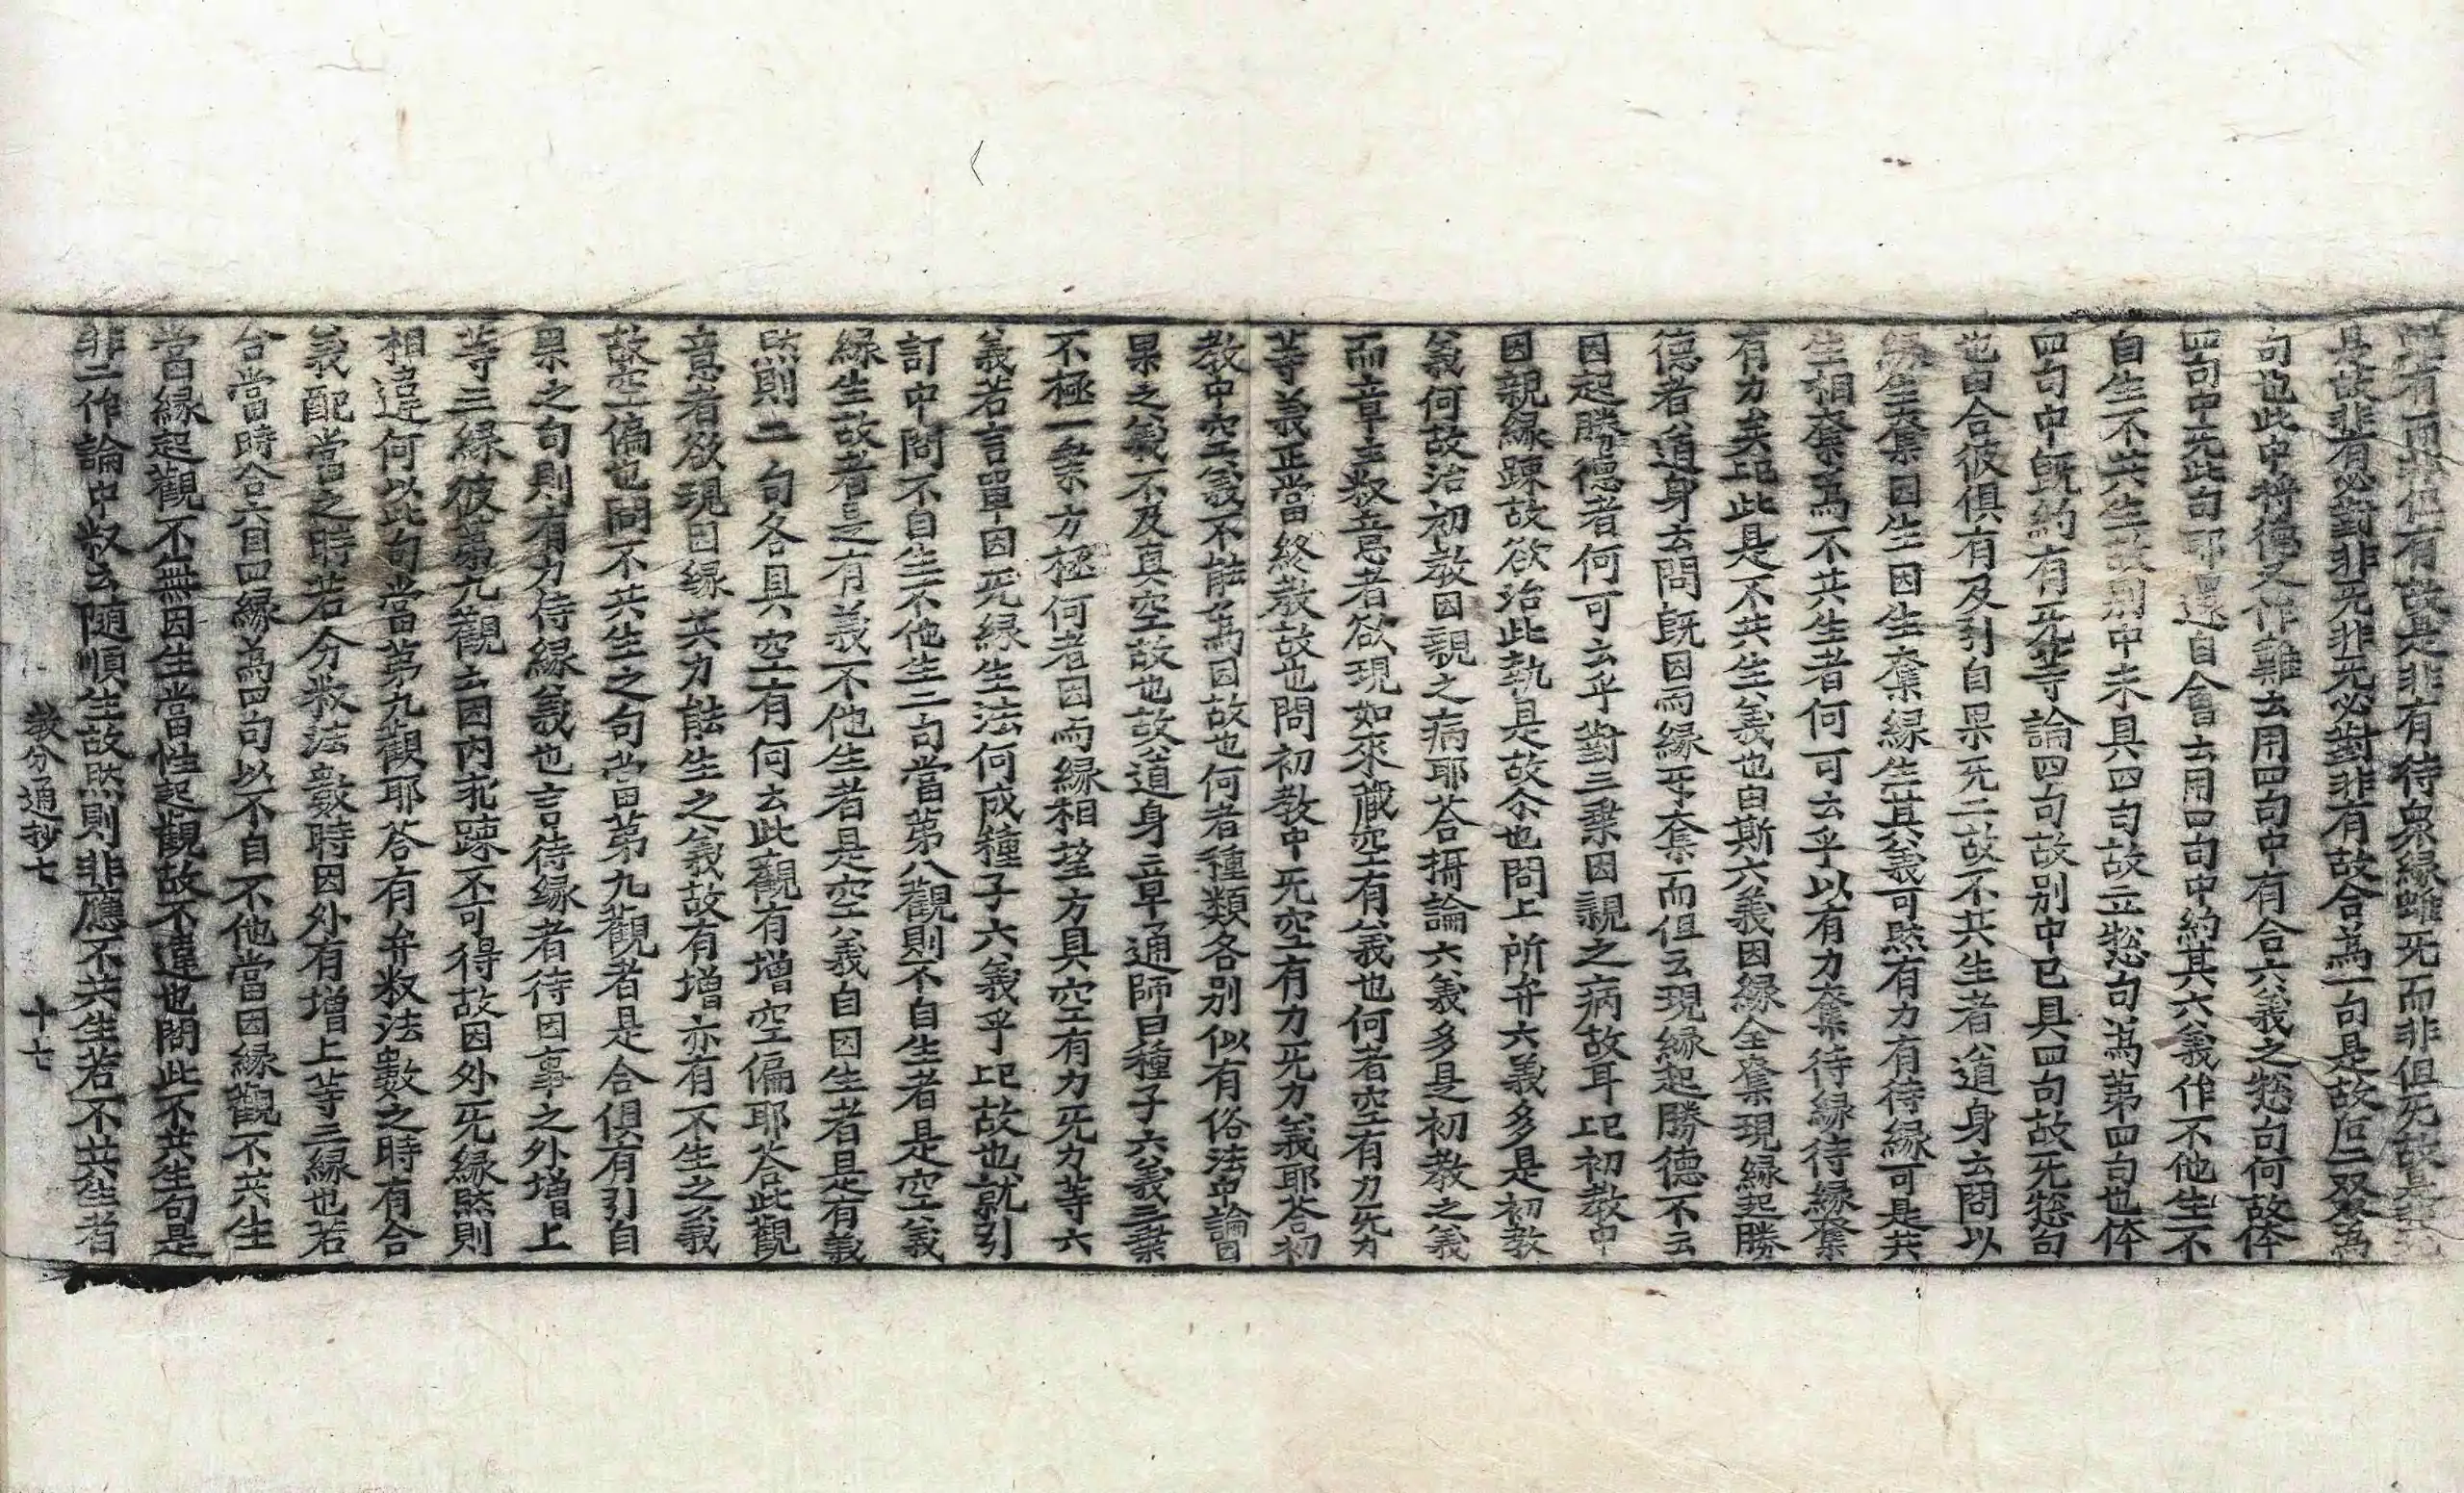 有而非但有故是非有待衆緣雖无而非但无故是非无
是故非有必對非无非无必對非有故合爲一句是故后二双双爲
句也此中將德又作難云用四句中有合六義之揔句何故体
四句中无此句耶還自會云用四句中約其六義作不他生不
自生不共生故別中未具四句故立揔句爲第四句也体
四句中旣約有无等論四句故別中已具四句故无揔句
也曰合彼俱有及引自果无二故不共生者道身云問以
緣生奪因生因生奪緣生其義可然有力有待緣可是共
生相奪爲不共生者何可云乎以有力奪待緣待緣奪
有力矣记此是不共生義也由斯六義因緣全奪現緣起勝
德者道身云問旣因而緣乎奪而但云現緣起勝德不云
因起勝德者何可云乎對三乗因親之病故耳记初教中
因親緣踈故欲治此執是故尒也問上所弁六義多是初教
義何故治初教因親之病耶荅攝論六義多是初教之義
而章主叙意者欲現如來藏空有義也何者空有力无力
等義正當終教故也問初教中无空有力无力義耶荅初
教中空義不能爲因故也何者種類各別似有俗法中論因
果之義不及真空故也故道身章通師曰種子六義三乗
不極一乗方極何者因而緣相望方具空有力无力等六
義若言單因无緣生法何成種子六義乎记故也就引
訂中問不自生不他生二句當第八觀則不自生者是空義
緣生故者是有義不他生者是空義自因生者是有義
然則二句各具空有何云此觀有增空偏耶荅此觀
意者欲現因緣其力能生之義故有增亦有不生之義
故空偏也問不共生之句當第九觀者是合俱有引自
果之句則有力待緣義也言待緣者待因事之外增上
等三緣彼第九觀云因內乖踈不可得故因外无緣然則
相違何以此句當第九觀耶荅有弁叙法數之時有合
義配當之時若分叙法數時因外有增上等三緣也若
合當時合六自四緣爲四句以不自不他當因緣觀不共生
當緣起觀不無因生當性起觀故不違也問此不共生句是
非二作論中叙云隨順生故然則非應不共生若不共生者
教分通抄七　十七